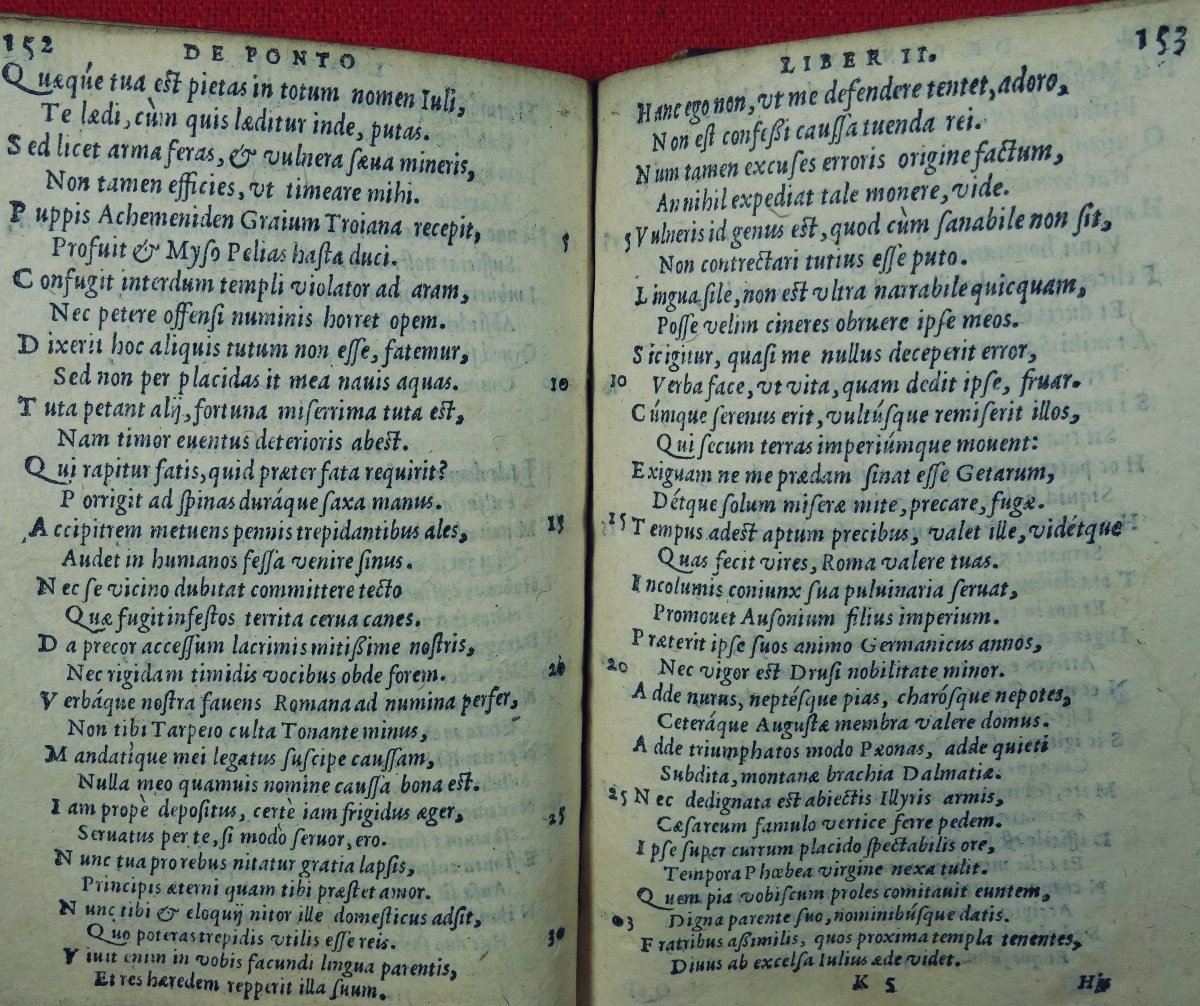 152
DE PONTO
Quæq́ue tua est pietas in totum nomen Iuli,
Te lædi, cùm quis læditur inde, putas.
Sed licet arma feras, & vulnera sæua mineris,
Non tamen efficies, vt timeare mihi.
Puppis Achemeniden Graium Troiana recepit,
5
Profuit & Myso Pelias hasta duci.
Confugit interdum templi violator ad aram,
Nec petere offensi numinis horret opem.
Dixerit hoc aliquis tutum non esse, fatemur,
Sed non per placidas it mea nauis aquas.
10
Tuta petant alij, fortuna miserrima tuta est,
Nam timor euentus deterioris abest.
Qui rapitur fatis, quid præter fata requirit?
Porrigit ad spinas duráque saxa manus.
Accipitrem metuens pennis trepidantibus ales,
15
Audet in humanos fessa venire sinus.
Nec se vicino dubitat committere tecto
Quæ fugit infestos territa cerua canes.
Da precor accessum lacrimis mitißime nostris,
Nec rigidam timidis vocibus obde forem.
20
Verbáque nostra fauens Romana ad numina perfer,
Non tibi Tarpeio culta Tonante minus,
Mandatíque mei legatus suscipe caussam,
Nulla meo quamuis nomine caussa bona est.
Iam propè depositus, certè iam frigidus æger,
25
Seruatus per te, si modò seruor, ero.
Nunc tua pro rebus nitatur gratia lapsis,
Principis æterni quam tibi præstet amor.
Nunc tibi & eloquij nitor ille domesticus adsit,
Quo poteras trepidis vtilis esse reis.
30
Viuit enim in vobis facundi lingua parentis,
Et res hæredem repperit illa suum.
153
LIBER II.
Hanc ego non, vt me defendere tentet, adoro,
Non est confeßi caussa tuenda rei.
Num tamen excuses erroris origine factum,
An nihil expediat tale monere, vide.
5
Vulneris id genus est, quod cùm sanabile non sit,
Non contrectari tutius esse puto.
Lingua sile, non est vltra narrabile quicquam,
Posse velim cineres obruere ipse meos.
Sic igitur, quasi me nullus deceperit error,
10
Verba face, vt vita, quam dedit ipse, fruar.
Cúmque serenus erit, vultúsque remiserit illos,
Qui secum terras imperiúmque mouent:
Exiguam ne me prædam sinat esse Getarum,
Détque solum miseræ mite, precare, fugæ.
15
Tempus adest aptum precibus, valet ille, vidétque
Quas fecit vires, Roma valere tuas.
Incolumis coniunx sua puluinaria seruat,
Promouet Ausonium filius imperium.
Præterit ipse suos animo Germanicus annos,
20
Nec vigor est Drusi nobilitate minor.
Adde nurus, neptésque pias, charósque nepotes,
Ceteráque Augustæ membra valere domus.
Adde triumphatos modo Pæonas, adde quieti
Subdita, montanæ brachia Dalmatiæ.
25
Nec dedignata est abiectis Illyris armis,
Cæsareum famulo vertice ferre pedem.
Ipse super currum placido spectabilis ore,
Tempora Phœbea virgine nexa tulit.
Quem pia vobiscum proles comitauit euntem,
03
Digna parente suo, nominibúsque datis.
Fratribus aßimilis, quos proxima templa tenentes,
Diuus ab excelsa Iulius æde videt.
K 5